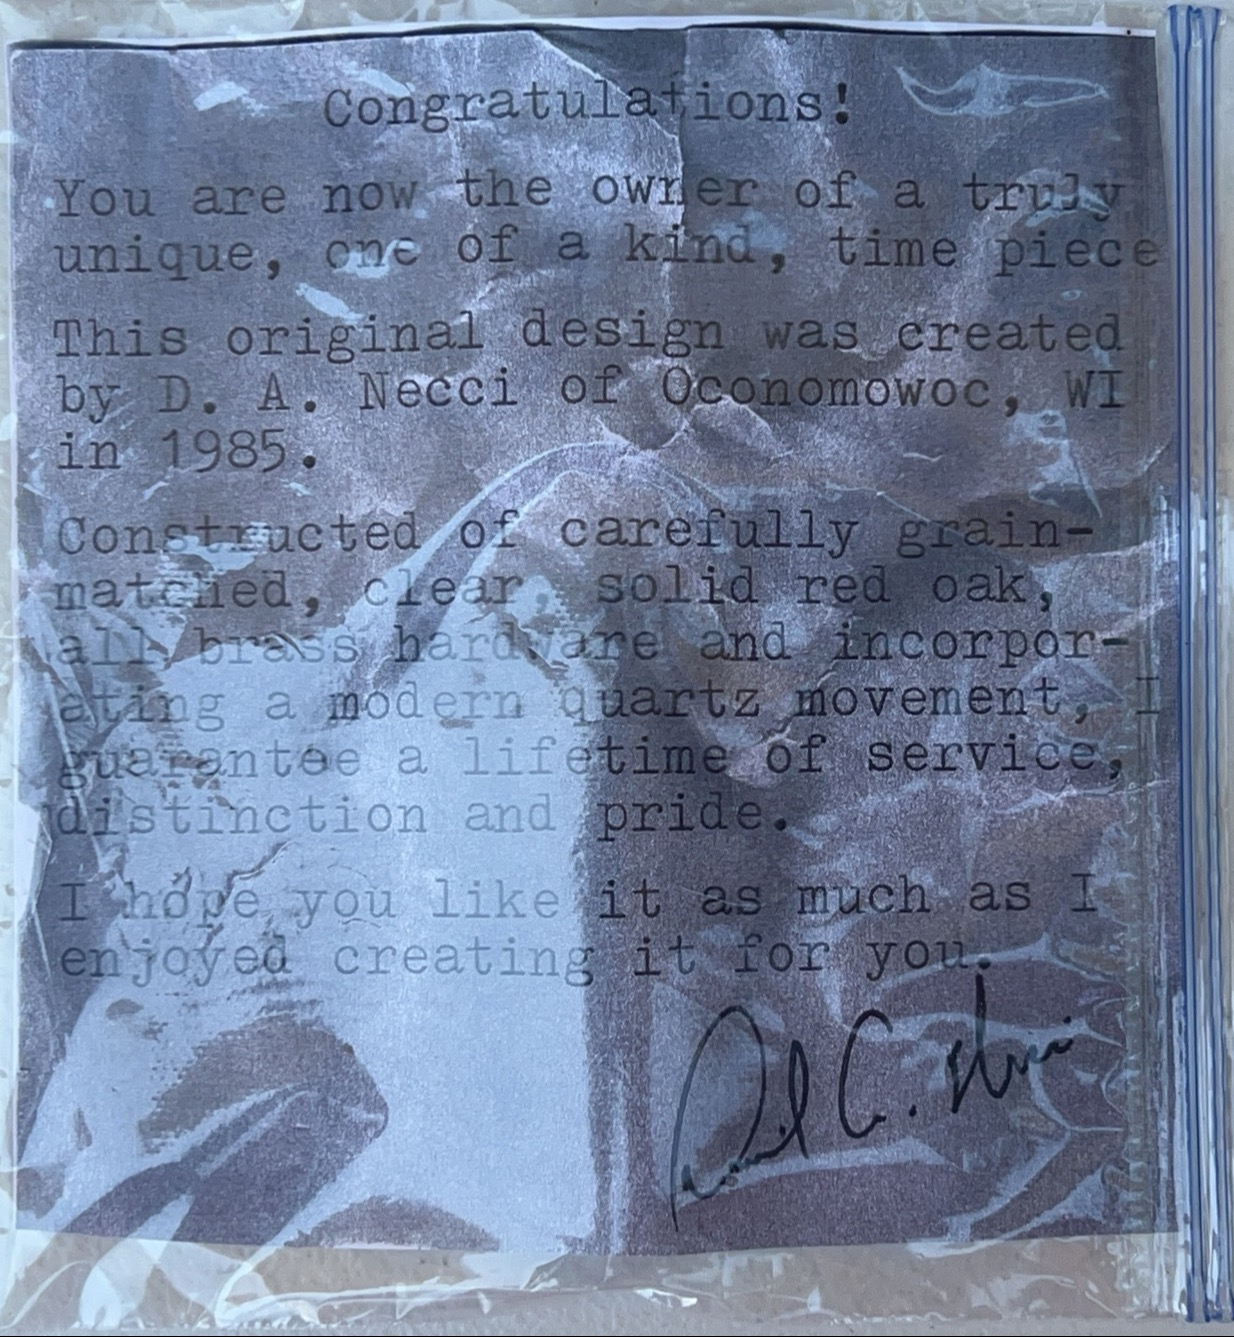 Congratulations!
You are now the owner of a truly
unique, one of a kind, time piece
This original design was created
by D. A. Necci of Oconomowoc, WI
in 1985.
Constructed of carefully grain-
matched, clear, solid red oak,
all brass hardware and incorpor-
ating a modern quartz movement, I
guarantee a lifetime of service,
distinction and pride.
I hope you like it as much as I
enjoyed creating it for you.